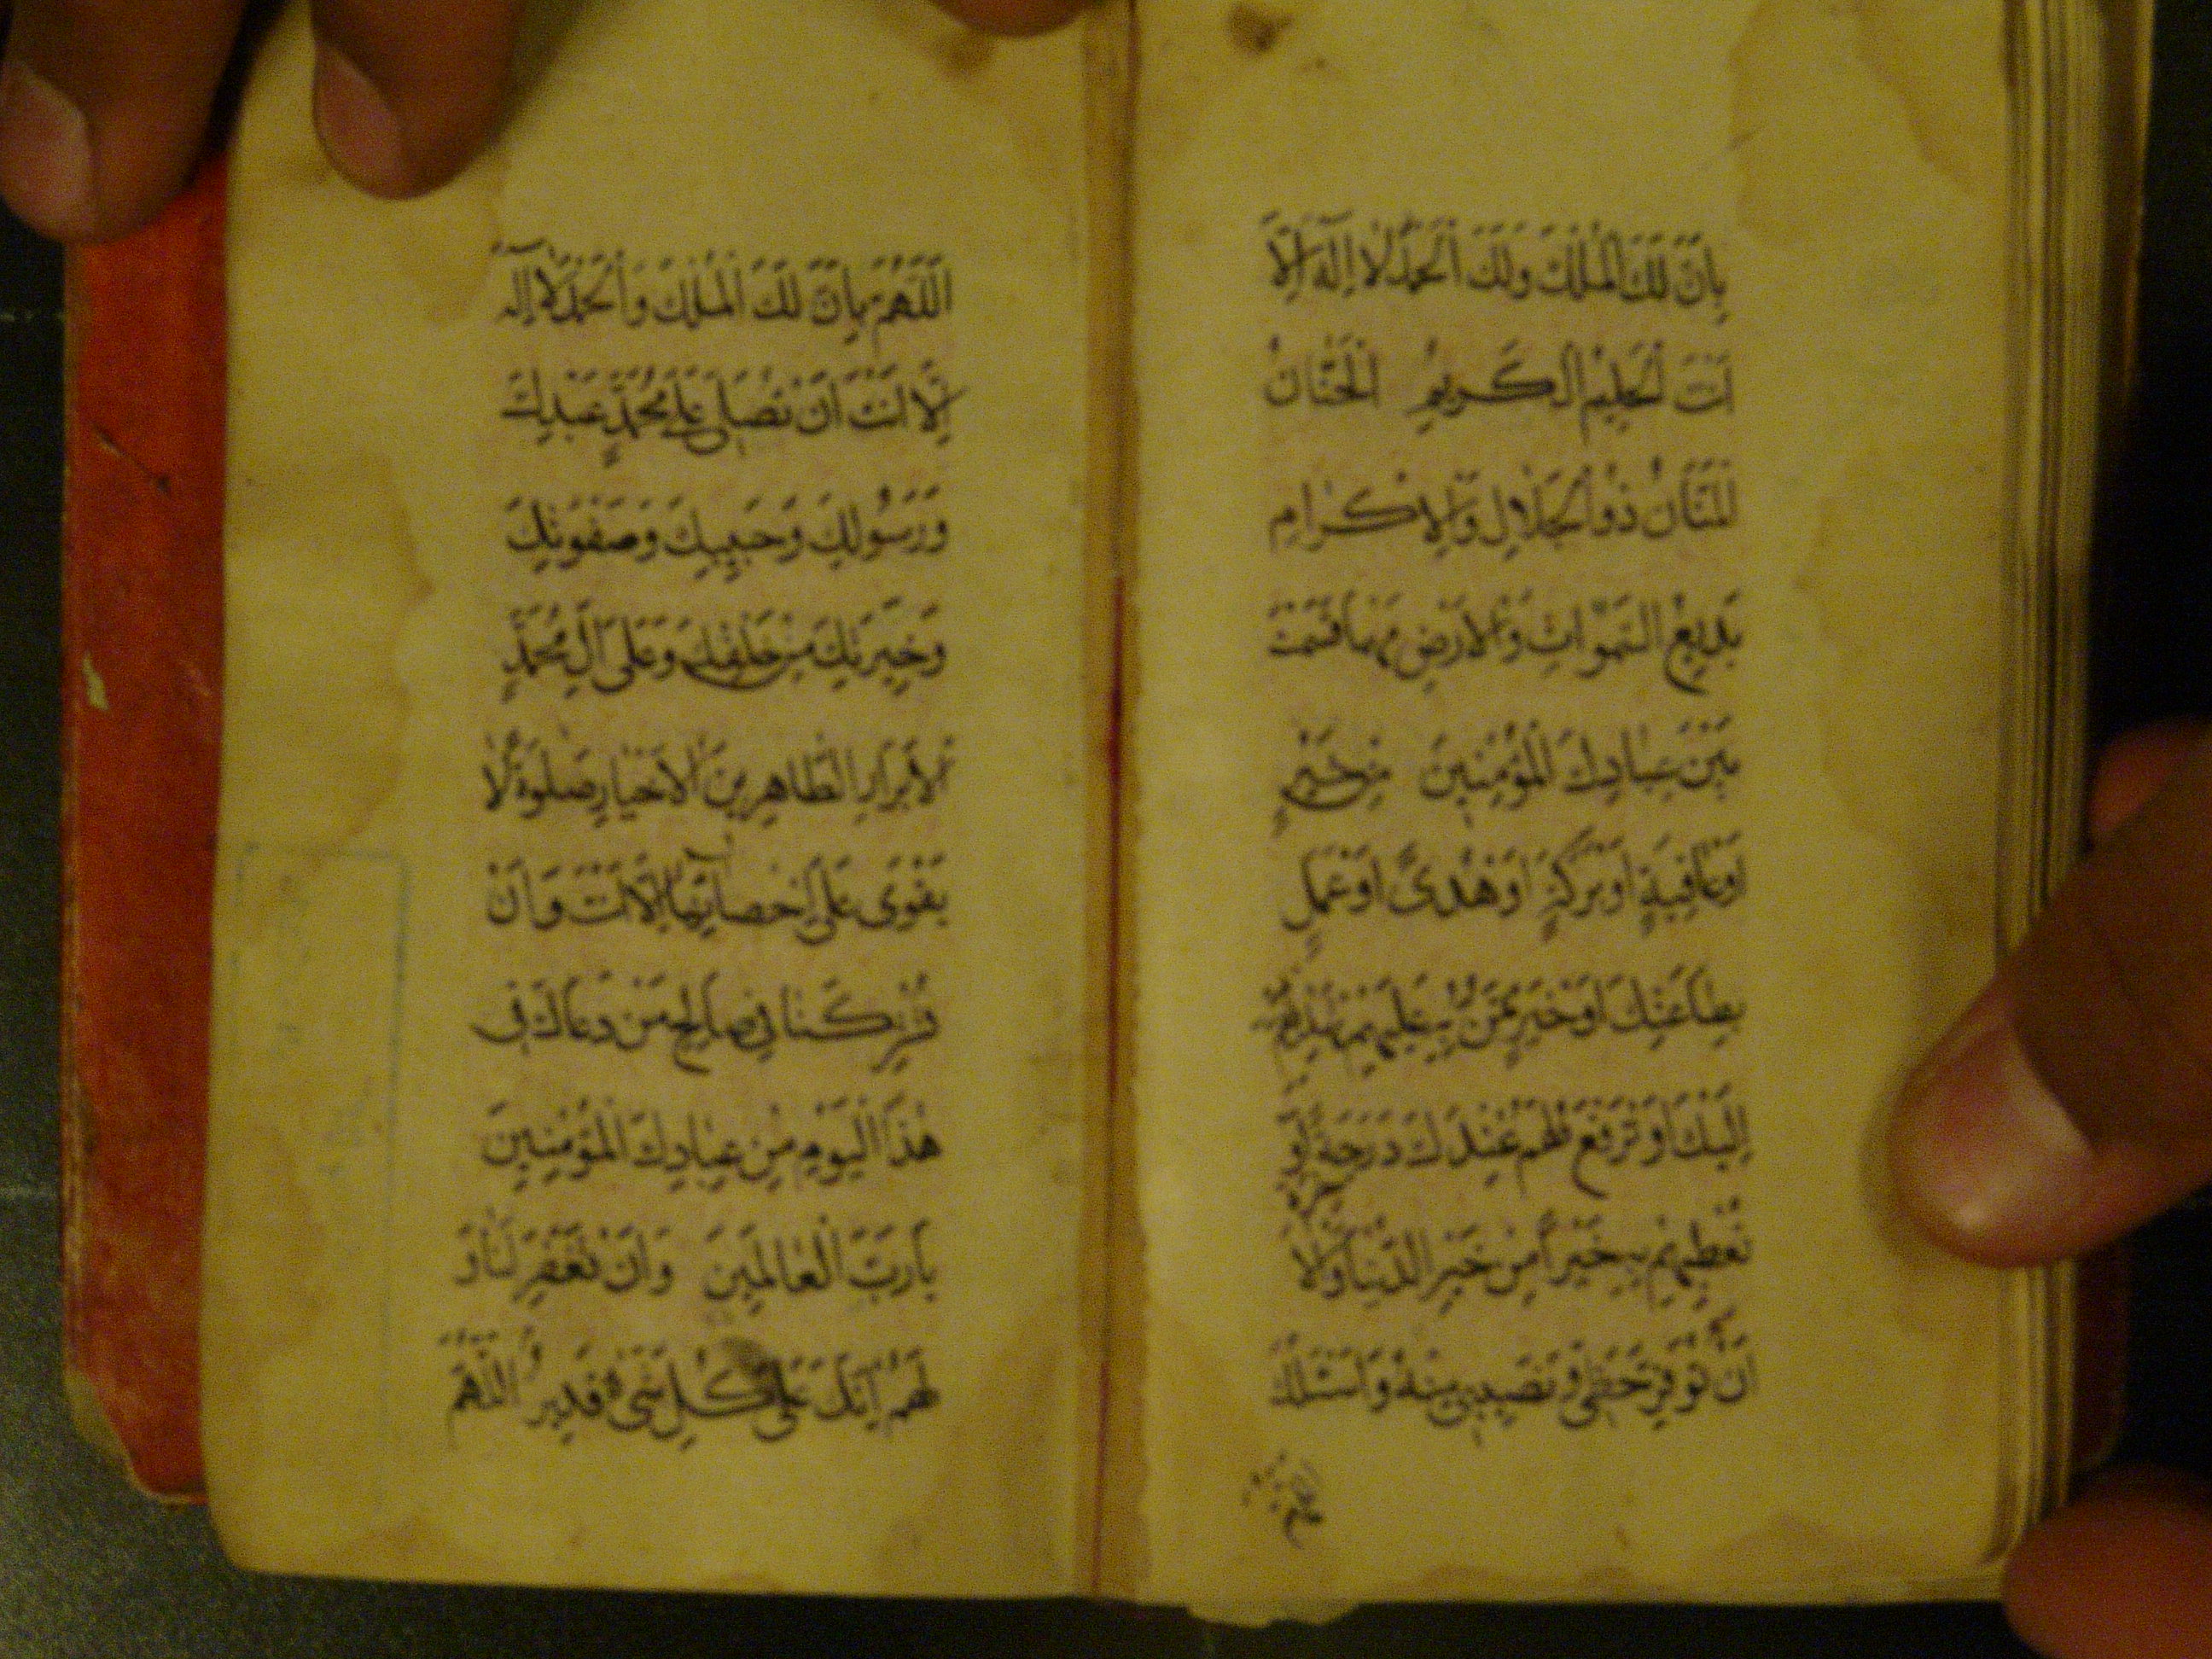 بِاَنَّ لَكَ الْمُلْكَ وَلَكَ الْحَمْدُ لَا اِلٰهَ اِلَّا
اَنْتَ الْحَلِيمُ الْكَرِيمُ الْحَنَّانُ
الْمَنَّانُ ذُو الْجَلَالِ وَالْاِكْرَامِ
بَدِيعُ السَّمٰوَاتِ وَالْاَرْضِ مَهْمَا قَسَمْتَ
بَيْنَ عِبَادِكَ الْمُؤْمِنِينَ مِنْ خَيْرٍ
اَوْ عَافِيَةٍ اَوْ بَرَكَةٍ اَوْ هُدًى اَوْ عَمَلٍ
بِطَاعَتِكَ اَوْ خَيْرٍ تَمُنُّ بِهِ عَلَيْهِمْ تَهْدِيهِمْ بِهِ
اِلَيْكَ اَوْ تَرْفَعُ لَهُمْ عِنْدَكَ دَرَجَةً اَوْ
تُعْطِيهِمْ بِهِ خَيْراً مِنْ خَيْرِ الدُّنْيَا وَالْاٰخِرَةِ
اَنْ تُوَفِّرَ حَظِّى وَنَصِيبِى مِنْهُ وَاَسْئَلُكَ
اللّٰهم
اَللّٰهُمَّ بِاَنَّ لَكَ الْمُلْكَ وَالْحَمْدَ لَا اِلٰهَ
اِلَّا اَنْتَ اَنْ تُصَلِّىَ عَلٰى مُحَمَّدٍ عَبْدِكَ
وَرَسُولِكَ وَحَبِيبِكَ وَصَفْوَتِكَ
وَخِيَرَتِكَ مِنْ خَلْقِكَ وَعَلٰى اٰلِ مُحَمَّدٍ
الْاَبْرَارِ الطَّاهِرِينَ الْاَخْيَارِ صَلٰوةً لَا
يَقْوٰى عَلٰى اِحْصَائِهَا اِلَّا اَنْتَ وَاَنْ
تُشْرِكَنَا فِى صَالِحِ مَنْ دَعَاكَ فِى
هٰذَا الْيَوْمِ مِنْ عِبَادِكَ الْمُؤْمِنِينَ
يَا رَبَّ الْعَالَمِينَ وَاَنْ تَغْفِرَ لَنَا وَ
لَهُمْ اِنَّكَ عَلٰى كُلِّ شَىْءٍ قَدِيرٌ اَللّٰهُمَّ